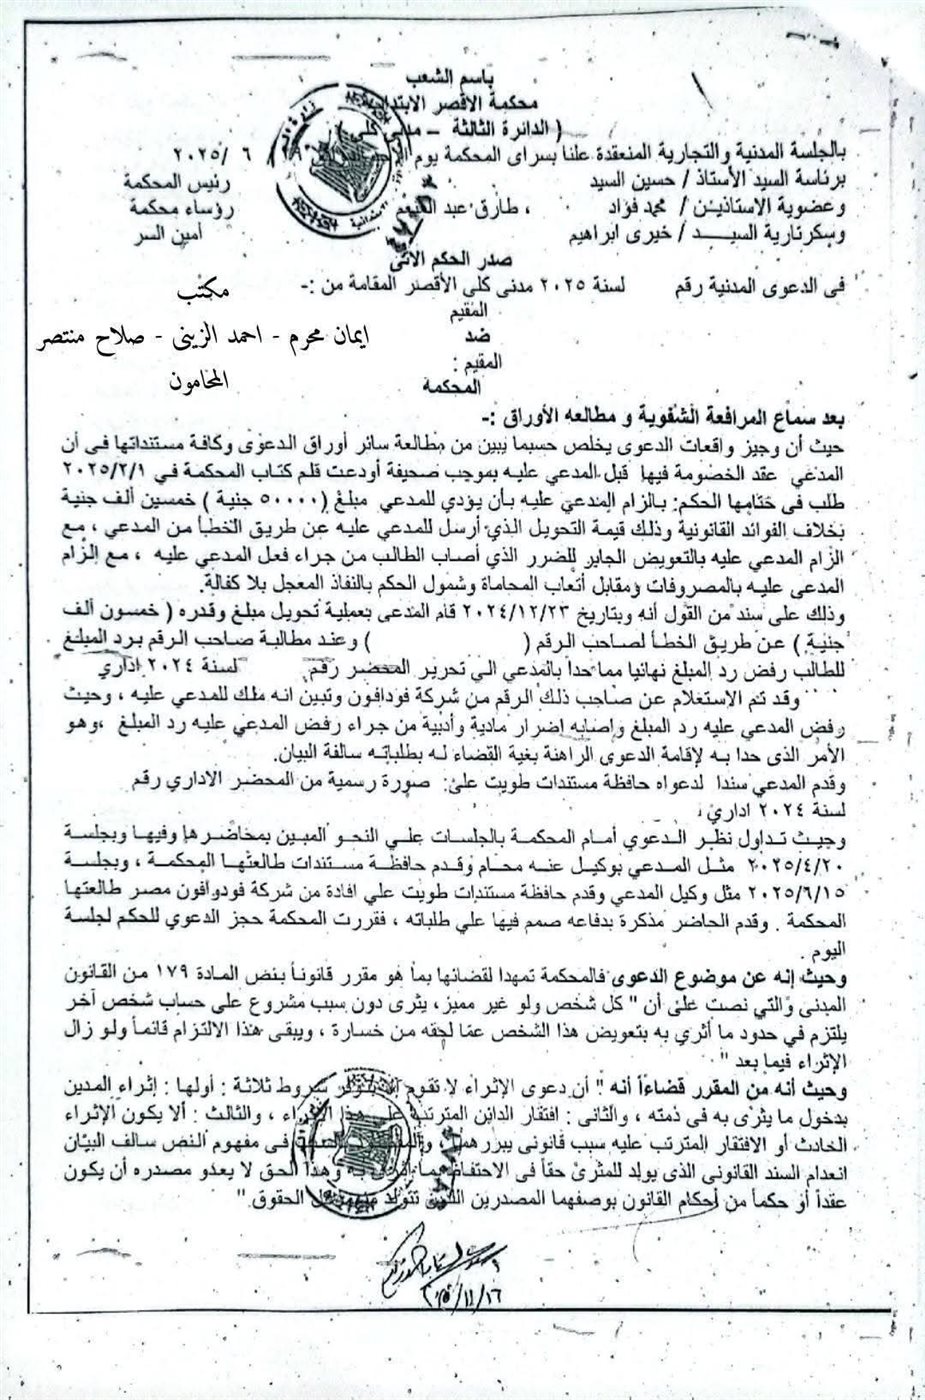 باسم الشعب
محكمة الاقصر الابتدائية
( الدائرة الثالثة – مدنى كلى )
بالجلسة المدنية والتجارية المنعقدة علنا بسراى المحكمة يوم ٦ /٢٠٢٥
برئاسة السيد الأستاذ / حسين السيد رئيس المحكمة
وعضوية الاستاذين / محمد فؤاد ، طارق عبد رؤساء محكمة
وسكرتارية السيد / خيرى ابراهيم أمين السر
صدر الحكم الاتى
فى الدعوى المدنية رقم لسنة ٢٠٢٥ مدنى كلى الأقصر المقامة من :-
مكتب
المقيم
ايمان محرم - احمد الزينى - صلاح منتصر
ضد
المقيم :
المحامون
المحكمة
بعد سماع المرافعة الشفوية و مطالعه الأوراق :-
حيث أن وجيز واقعات الدعوى يخلص حسبما يبين من مطالعة سائر أوراق الدعوى وكافة مستنداتها فى أن
المدعي عقد الخصومة فيها قبل المدعي عليه بموجب صحيفة أودعت قلم كتاب المحكمة في ٢٠٢٥/٢/١
طلب فى ختامها الحكم: بالزام المدعي عليه بأن يؤدي للمدعي مبلغ (٥٠٠٠٠ جنية ) خمسين ألف جنية
بخلاف الفوائد القانونية وذلك قيمة التحويل الذي أرسل للمدعي عليه عن طريق الخطأ من المدعي ، مع
الزام المدعي عليه بالتعويض الجابر للضرر الذي أصاب الطالب من جراء فعل المدعي عليه ، مع إلزام
المدعى عليه بالمصروفات ومقابل أتعاب المحاماة وشمول الحكم بالنفاذ المعجل بلا كفالة.
وذلك على سند من القول أنه وبتاريخ ٢٠٢٤/١٢/٢٣ قام المدعى بعملية تحويل مبلغ وقدره ( خمسون ألف
جنية ) عن طريق الخطأ لصاحب الرقم ( ) وعند مطالبة صاحب الرقم برد المبلغ
للطالب رفض رد المبلغ نهائيا مما حدا بالمدعي الي تحرير المحضر رقم لسنة ٢٠٢٤ اداري
وقد تم الاستعلام عن صاحب ذلك الرقم من شركة فودافون وتبين انه ملك للمدعي عليه ، وحيث
رفض المدعي عليه رد المبلغ واصابه اضرار مادية وأدبية من جراء رفض المدعي عليه رد المبلغ ،وهو
الأمر الذى حدا به لإقامة الدعوى الراهنة بغية القضاء له بطلباته سالفة البيان.
وقدم المدعي سندا لدعواه حافظة مستندات طويت علي: صورة رسمية من المحضر الاداري رقم
لسنة ٢٠٢٤ اداري،
وحيث تداول نظر الدعوي أمام المحكمة بالجلسات علي النحو المبين بمحاضرها وفيها وبجلسة
٢٠٢٥/٤/٢٠ مثل المدعي بوكيل عنه محام وقدم حافظة مستندات طالعتها المحكمة ، وبجلسة
٢٠٢٥/٦/١٥ مثل وكيل المدعي وقدم حافظة مستندات طويت علي افادة من شركة فودوافون مصر طالعتها
المحكمة . وقدم الحاضر مذكرة بدفاعه صمم فيها علي طلباته ، فقررت المحكمة حجز الدعوي للحكم لجلسة
اليوم .
وحيث إنه عن موضوع الدعوى فالمحكمة تمهدا لقضائها بما هو مقرر قانونا بنص المادة ١٧٩ من القانون
المدنى والتي نصت على أن " كل شخص ولو غير مميز، يثرى دون سبب مشروع على حساب شخص آخر
يلتزم في حدود ما أثري به بتعويض هذا الشخص عما لحقه من خسارة ، ويبقى هذا الالتزام قائما ولو زال
الإثراء فيما بعد "
وحيث أنه من المقرر قضاءاً أنه " أن دعوى الإثراء لا تقوم إلا بتوافر شروط ثلاثة : أولها : إثراء المدين
بدخول ما يثرى به فى ذمته ، والثانى : افتقار الدائن المترتب على هذا الإثراء ، والثالث : ألا يكون الإثراء
الحادث أو الافتقار المترتب عليه سبب قانونى يبررهما فى مفهوم النص سالف البيان
انعدام السند القانونى الذى يولد للمثرى حقاً فى الاحتفاظ بما أثرى به وهذا الحق لا يعدو مصدره أن يكون
عقداً أو حكماً من أحكام القانون بوصفهما المصدرين اللذين تتولد الحقوق "
٢٠٢٥/١١/١٦